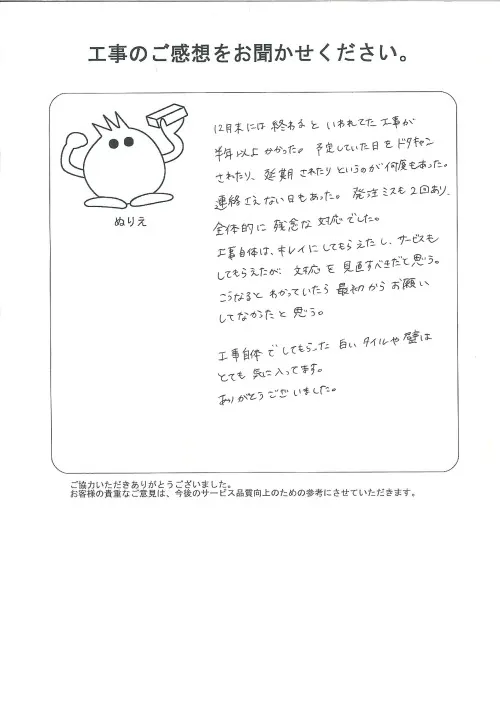 工事のご感想をお聞かせください。
ぬりえ
12月末には終わると いわれてた工事が
半年以上かかった。予定していた日をドタキャン
されたり、延期されたりというのが何度もあった。
連絡さえない日もあった。発注ミスも2回あり、
全体的に残念な対応でした。
工事自体は、キレイにしてもらえたし、サービスも
してもらえたが 対応を見直すべきだと思う。
こうなるとわかっていたら最初からお願い
してなかったと思う。
工事自体でしてもらった白いタイルや壁は
とても気に入ってます。
ありがとうございました。
ご協力いただきありがとうございました。
お客様の貴重なご意見は、今後のサービス品質向上のための参考にさせていただきます。